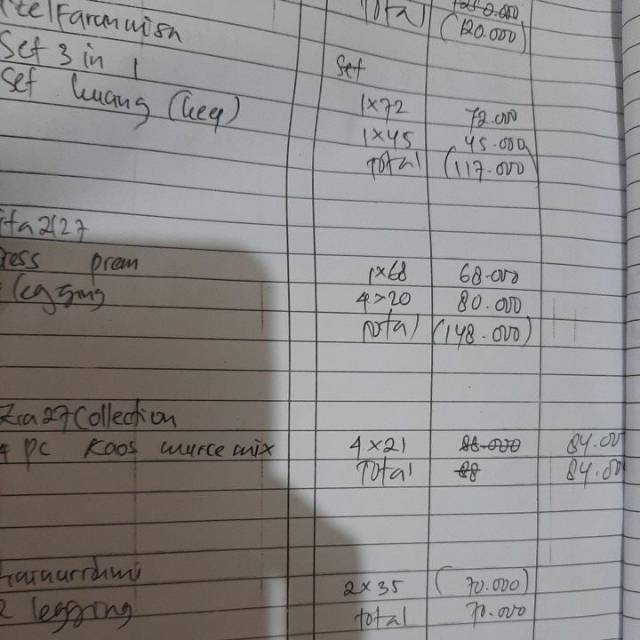 Total
(120.000)
Set 3 in 1 Set
Set kuang (keq) 1x72 72.000
1x45 45.000
Total (117.000)
prem 1x68 68.000
legging 4x20 80.000
total (148.000)
27 Collection
4 pc kaos murce mix 4x21 88.000 84.00
Total 88 84.00
2x35 (70.000)
2 legging total 70.000